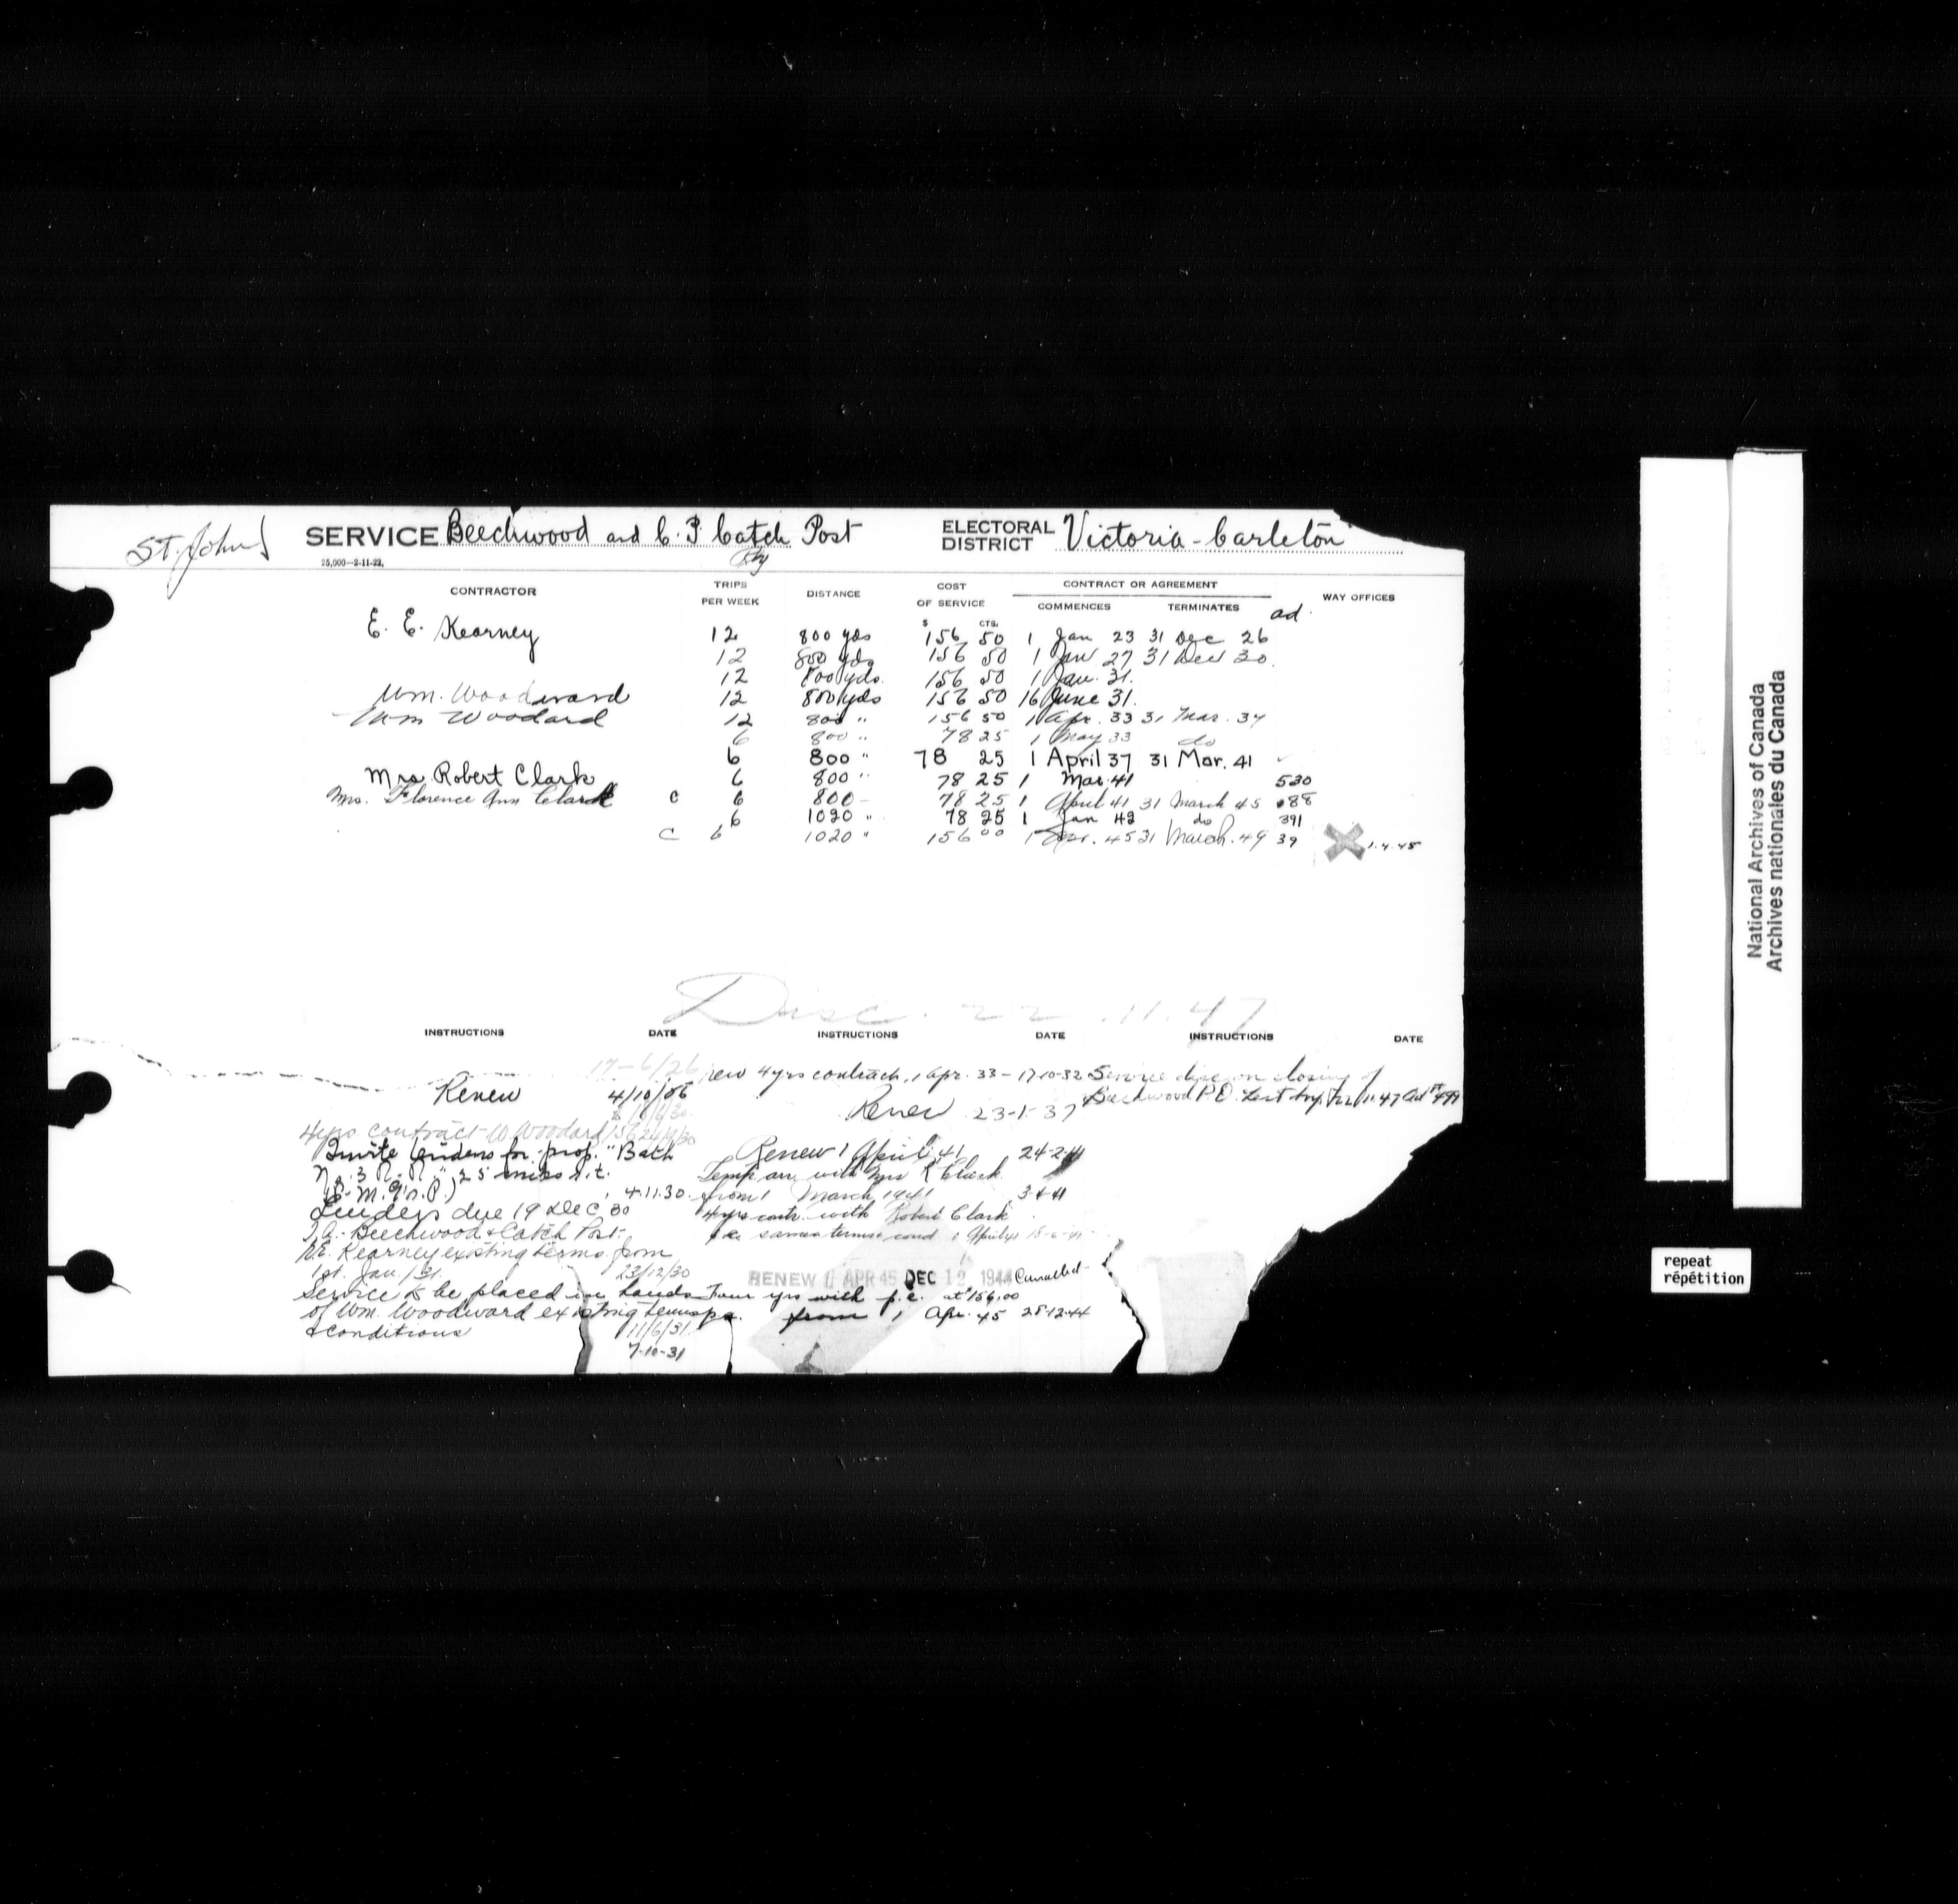 St. John
SERVICE Beechwood and C. P. Catch Post
Ry
ELECTORAL DISTRICT Victoria - Carleton
25,000—2-11-22.
CONTRACTOR TRIPS PER WEEK DISTANCE COST OF SERVICE CONTRACT OR AGREEMENT WAY OFFICES
COMMENCES TERMINATES ad.
$ CTS.
E. E. Kearney 12 800 yds 156 50 1 Jan 23 31 Dec 26
12 800 yds 156 50 1 Jan 27 31 Dec 30
12 800 yds. 156 50 1 Jan. 31.
Wm. Woodward 12 800 yds 156 50 16 June 31.
Wm Woodard 12 800 " 156 50 1 Apr. 33 31 Mar. 37
6 800 " 78 25 1 May 33 do
6 800 " 78 25 1 April 37 31 Mar. 41
Mrs. Robert Clark 6 800 " 78 25 1 Mar. 41 530
Mrs. Florence Ann Clark c 6 800 - 78 25 1 April 41 31 March 45 88
6 1020 " 78 25 1 Jan 42 do 391
C 6 1020 " 156 00 1 Apr. 45 31 March. 49 39 1.4.45
Disc. 22.11.47
INSTRUCTIONS DATE INSTRUCTIONS DATE INSTRUCTIONS DATE
17-6/26
Renew 4/10/06
4 yrs contract W Woodard
Invite tenders for prop. "Bath
No. 3 R.R." 25 miles s.t.
4.11.30
Tenders due 19 Dec, 30
T.A. - Beechwood & Catch Post.
Kearney existing terms. from
1st. Jan./31. 23/12/30
Service to be placed in hands
of Wm. Woodward existing terms
& conditions 11/6/31.
7-10-31
new 4 yrs contract, 1 Apr. 33 - 17-10-32
Renew 23-1-37
Renew 1 April, 41 24-2-41
Temp arr. with Mrs R Clark
from 1 March 1941 3-4-41
4 yrs contr. with Robert Clark
same terms & cond 1 April 41
RENEW 1 APR 45 DEC 12 1944 Cancelled
Four yrs with p.c. at $156.00 p.a.
from 1 Apr. 45 28-12-44
Service disc. on closing of
Beechwood P.O. Last trip 22/11/47
National Archives of Canada
Archives nationales du Canada
repeat
répétition